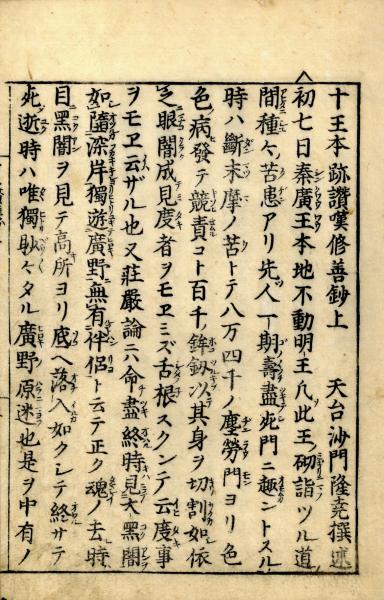 十王本跡讚嘆修善鈔上　天台沙門隆尭撰述
初七日秦廣王本地不動明王凡此王砌詣ツル道
間種々苦患アリ先人一期壽盡死門ニ趣ントスル
時ハ斷末摩ノ苦トテ八万四千ノ塵勞門ヨリ色
色病發テ競責コト百千鉾釼以其身ヲ切割如依
之眼闇成見度者ヲモヱミズ舌根スクンテ云度事
ヲモヱ云ザル也又莊嚴論ニ命盡終時見大黑闇
如隨深岸獨遊廣野無有伴侶ト云テ正ク魂ノ去時
目黑闇ヲ見テ高所ヨリ底ヘ落入如クシテ終サテ
死逝時ハ唯獨眇々タル廣野原迷也是ヲ中有ノ